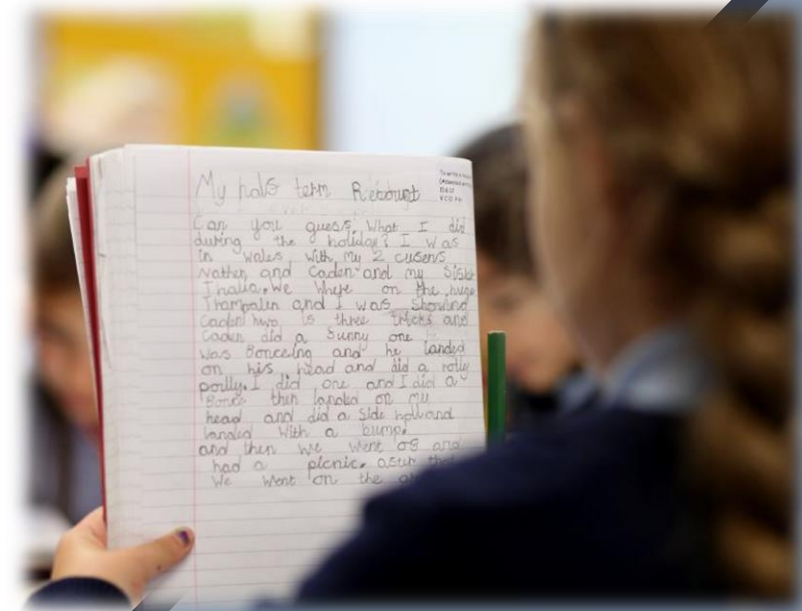 My half term Recount
Can you guess What I did
during the holiday? I was
in Wales with my 2 cusens
Nathen and Caden and my Sister
Thalia. We Where on the huge
Trampalin and I was Showing
Caden two is three tricks and
Caden did a Sunny one he
Was Bonceing and he landed
on his head and did a rolly
polly. I did one and I did a
Bonce then landed on my
head and did a side roll and
landed With a bump.
and then we went of and
had a picnic. after that
We Went on the